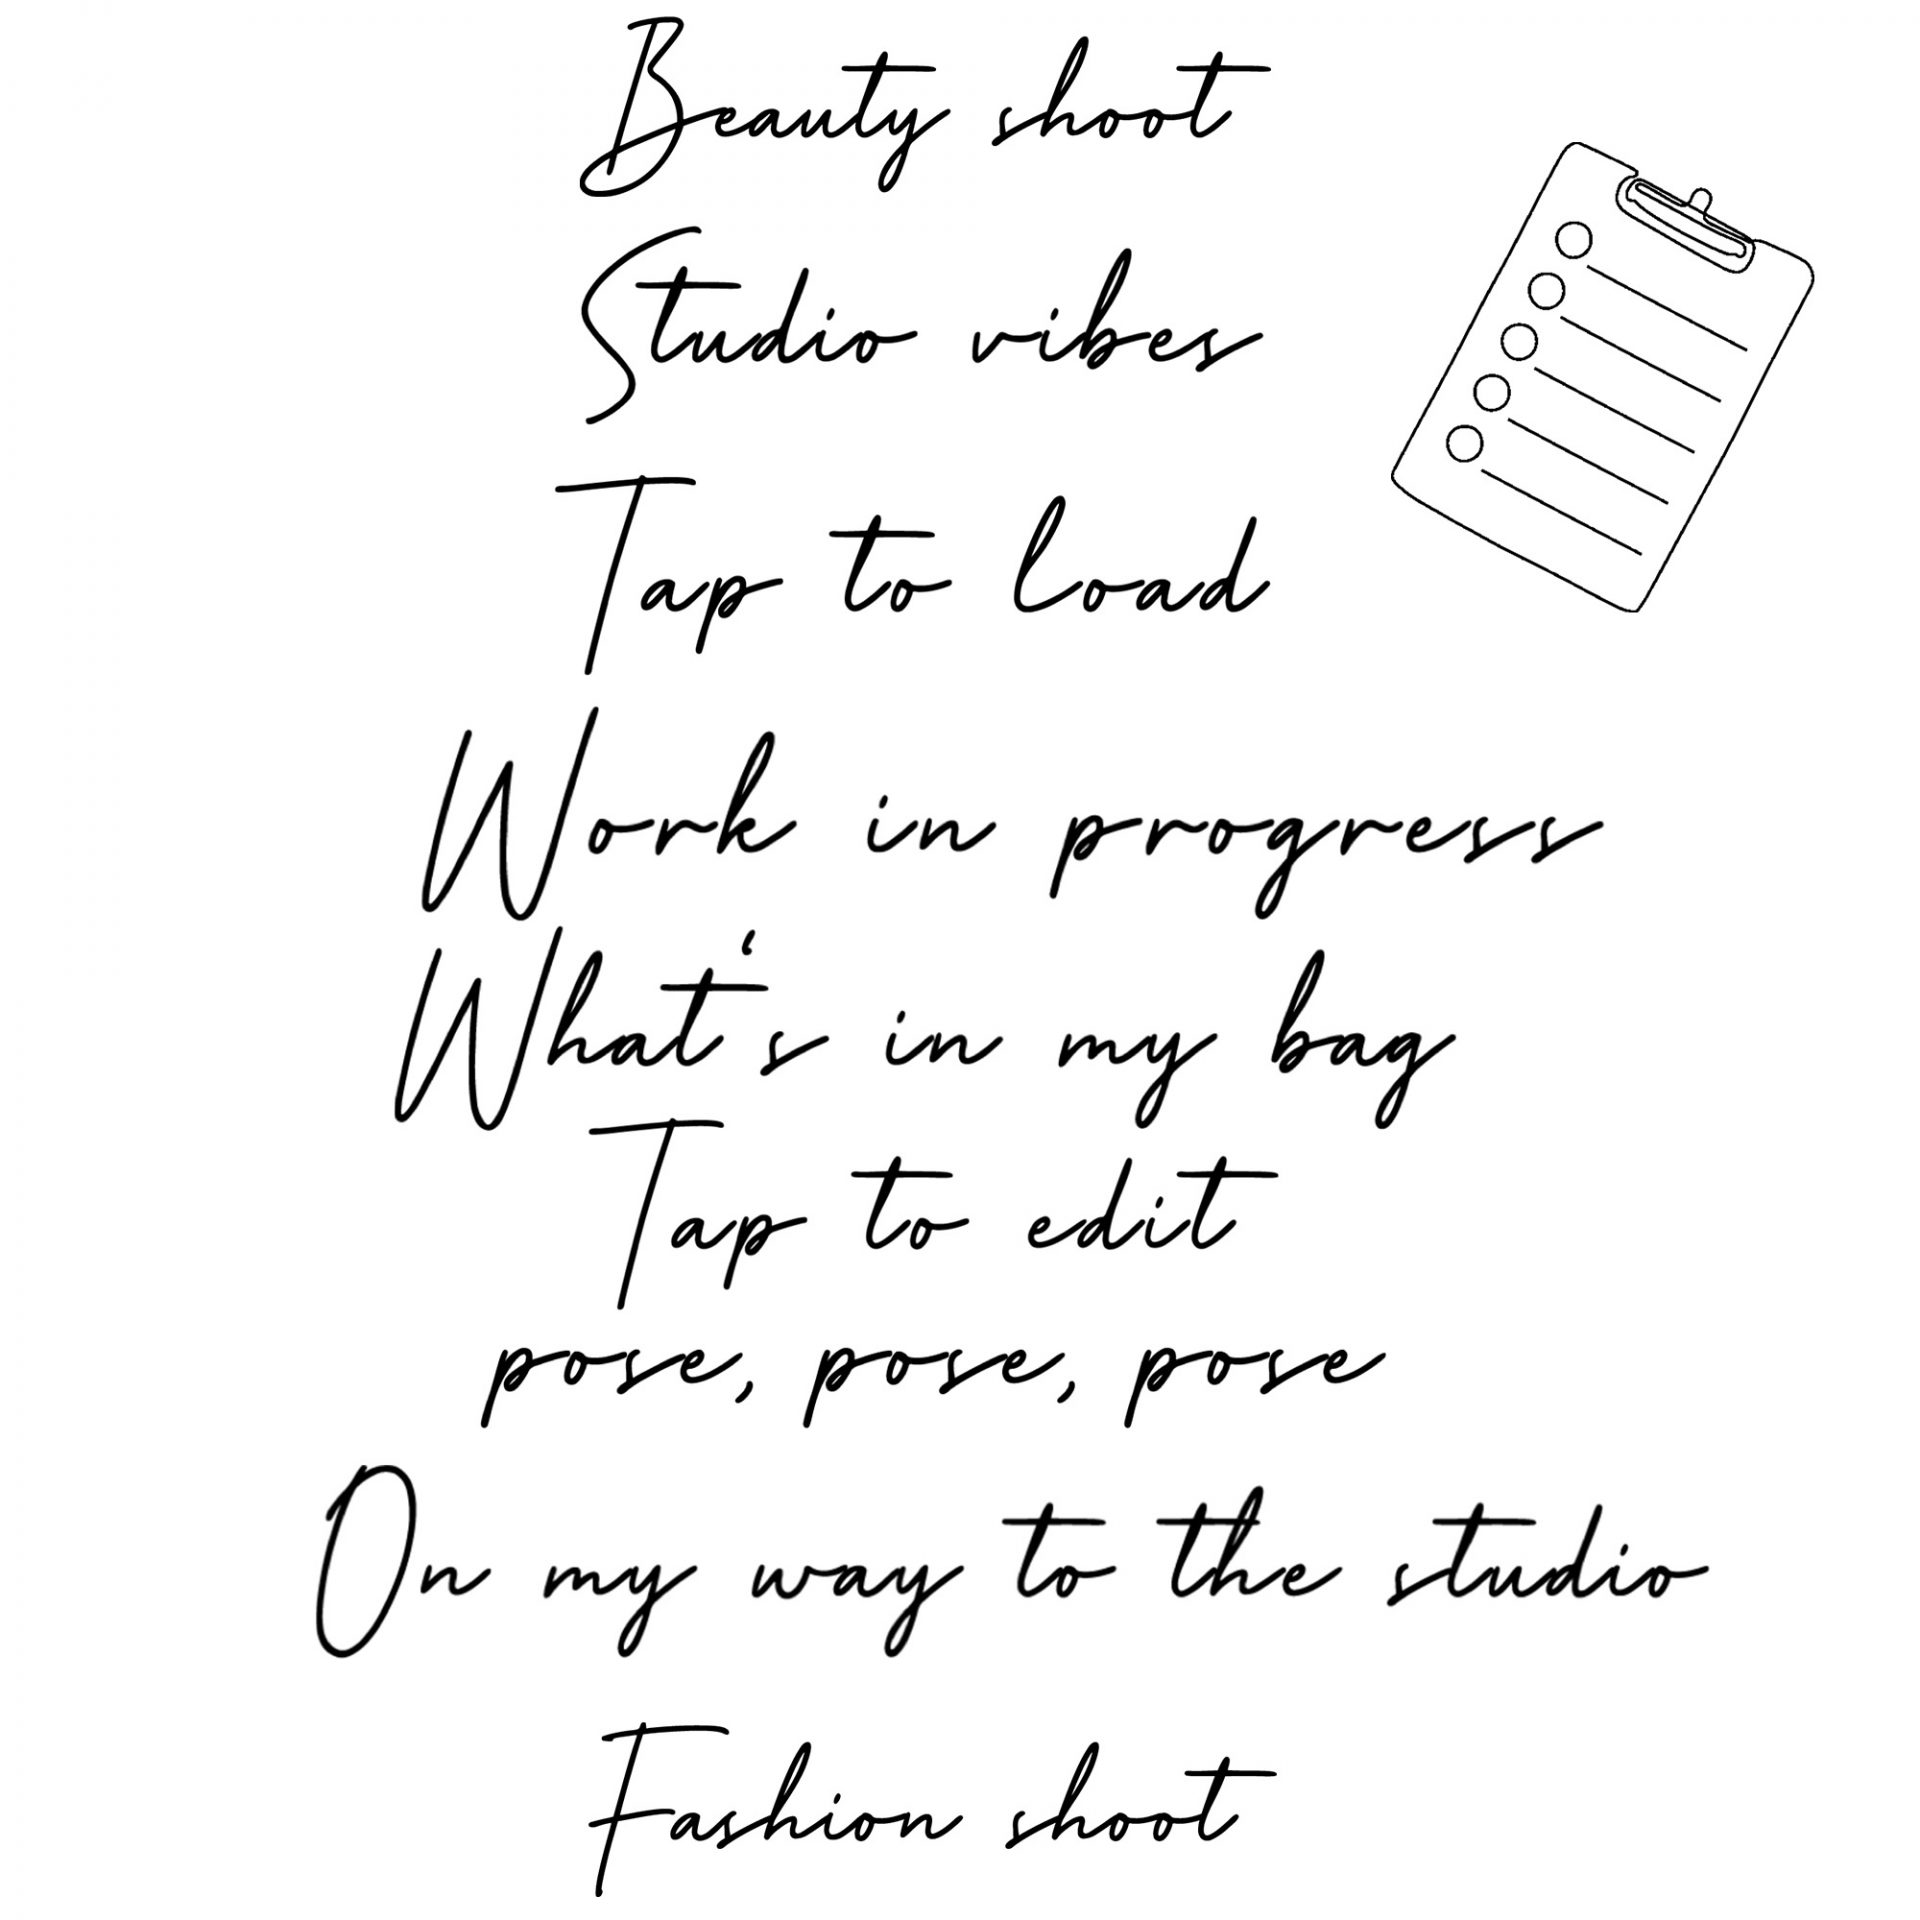 Beauty shoot
Studio vibes
Tap to load
Work in progress
What's in my bag
Tap to edit
pose, pose, pose
On my way to the studio
Fashion shoot